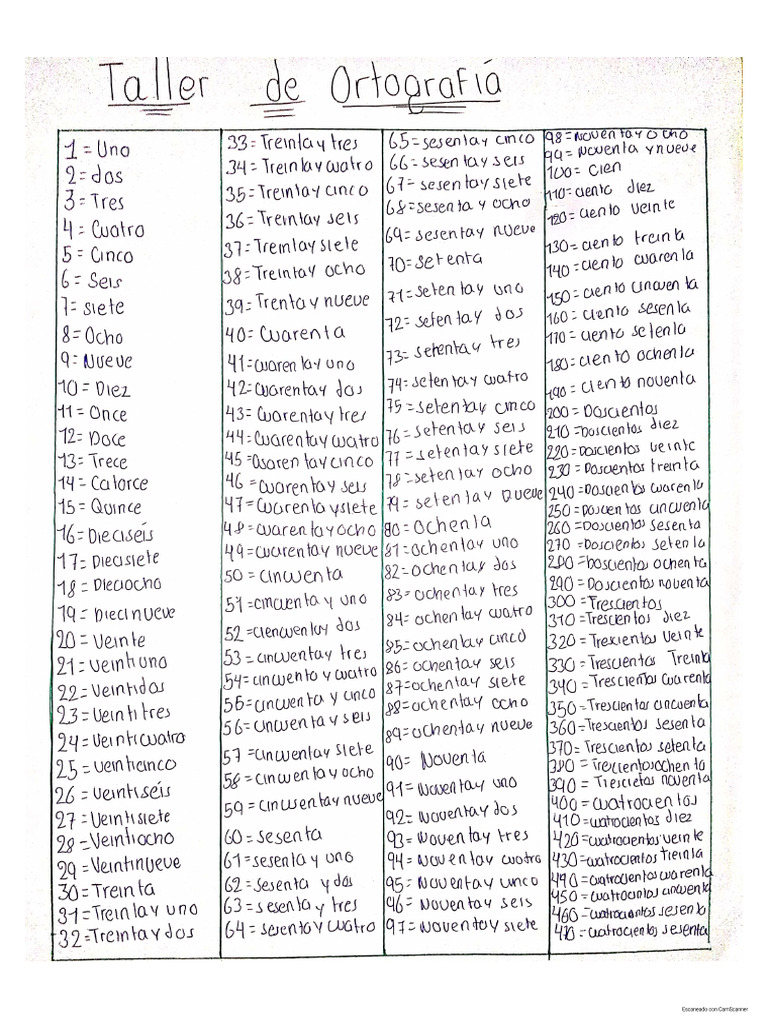 Taller de Ortografía
1 = Uno
2 = dos
3 = Tres
4 = Cuatro
5 = Cinco
6 = Seis
7 = siete
8 = Ocho
9 = Nueve
10 = Diez
11 = Once
12 = Doce
13 = Trece
14 = Catorce
15 = Quince
16 = Dieciséis
17 = Diecisiete
18 = Dieciocho
19 = Diecinueve
20 = Veinte
21 = Veintiuno
22 = Veintidos
23 = Veintitres
24 = Veinticuatro
25 = Veinticinco
26 = Veintiséis
27 = Veintisiete
28 = Veintiocho
29 = Veintinueve
30 = Treinta
31 = Treinta y uno
32 = Treinta y dos
33 = Treinta y tres
34 = Treinta y cuatro
35 = Treinta y cinco
36 = Treinta y seis
37 = Treinta y siete
38 = Treinta y ocho
39 = Trenta y nueve
40 = Cuarenta
41 = cuarenta y uno
42 = cuarenta y dos
43 = Cuarenta y tres
44 = Cuarenta y cuatro
45 = Cuarenta y cinco
46 = Cuarenta y seis
47 = Cuarenta y siete
48 = cuarenta y ocho
49 = cuarenta y nueve
50 = cincuenta
51 = cincuenta y uno
52 = ciencuenta y dos
53 = cincuenta y tres
54 = cincuento y cuatro
55 = cincuenta y cinco
56 = cincuenta y seis
57 = cincuenta y siete
58 = cincuenta y ocho
59 = cincuenta y nueve
60 = sesenta
61 = sesenta y uno
62 = sesenta y dos
63 = sesenta y tres
64 = sesenta y cuatro
65 = sesenta y cinco
66 = sesenta y seis
67 = sesenta y siete
68 = sesenta y ocho
69 = sesenta y nueve
70 = setenta
71 = setenta y uno
72 = setenta y dos
73 = setenta y tres
74 = setenta y cuatro
75 = setenta y cinco
76 = setenta y seis
77 = setenta y siete
78 = setenta y ocho
79 = setenta y nueve
80 = ochenta
81 = ochenta y uno
82 = ochenta y dos
83 = ochenta y tres
84 = ochenta y cuatro
85 = ochenta y cinco
86 = ochenta y seis
87 = ochenta y siete
88 = ochenta y ocho
89 = ochenta y nueve
90 = Noventa
91 = Noventa y uno
92 = Noventa y dos
93 = Noventa y tres
94 = Noventa y cuatro
95 = Noventa y cinco
96 = Noventa y seis
97 = Noventa y siete
98 = Noventa y ocho
99 = Noventa y nueve
100 = cien
110 = ciento diez
120 = ciento veinte
130 = ciento treinta
140 = ciento cuarenta
150 = ciento cincuenta
160 = ciento sesenta
170 = ciento setenta
180 = ciento ochenta
190 = ciento noventa
200 = Doscientos
210 = Doscientos diez
220 = Doscientos veinte
230 = Doscientos treinta
240 = Doscientos cuarenta
250 = Doscientos cincuenta
260 = Doscientos sesenta
270 = Doscientos setenta
280 = Doscientos ochenta
290 = Doscientos noventa
300 = Trescientos
310 = Trescientos diez
320 = Trescientos veinte
330 = Trescientos Treinta
340 = Trescientos cuarenta
350 = Trescientos cincuenta
360 = Trescientos sesenta
370 = Trescientos setenta
380 = Trescientos ochenta
390 = Trescietos noventa
400 = cuatrocientos
410 = cuatrocientos diez
420 = cuatrocientos veinte
430 = cuatrocientos Treinta
440 = cuatrocientos cuarenta
450 = cuatrocientos cincuenta
460 = cuatrocientos sesenta
470 = cuatrocientos sesenta
Escaneado con CamScanner